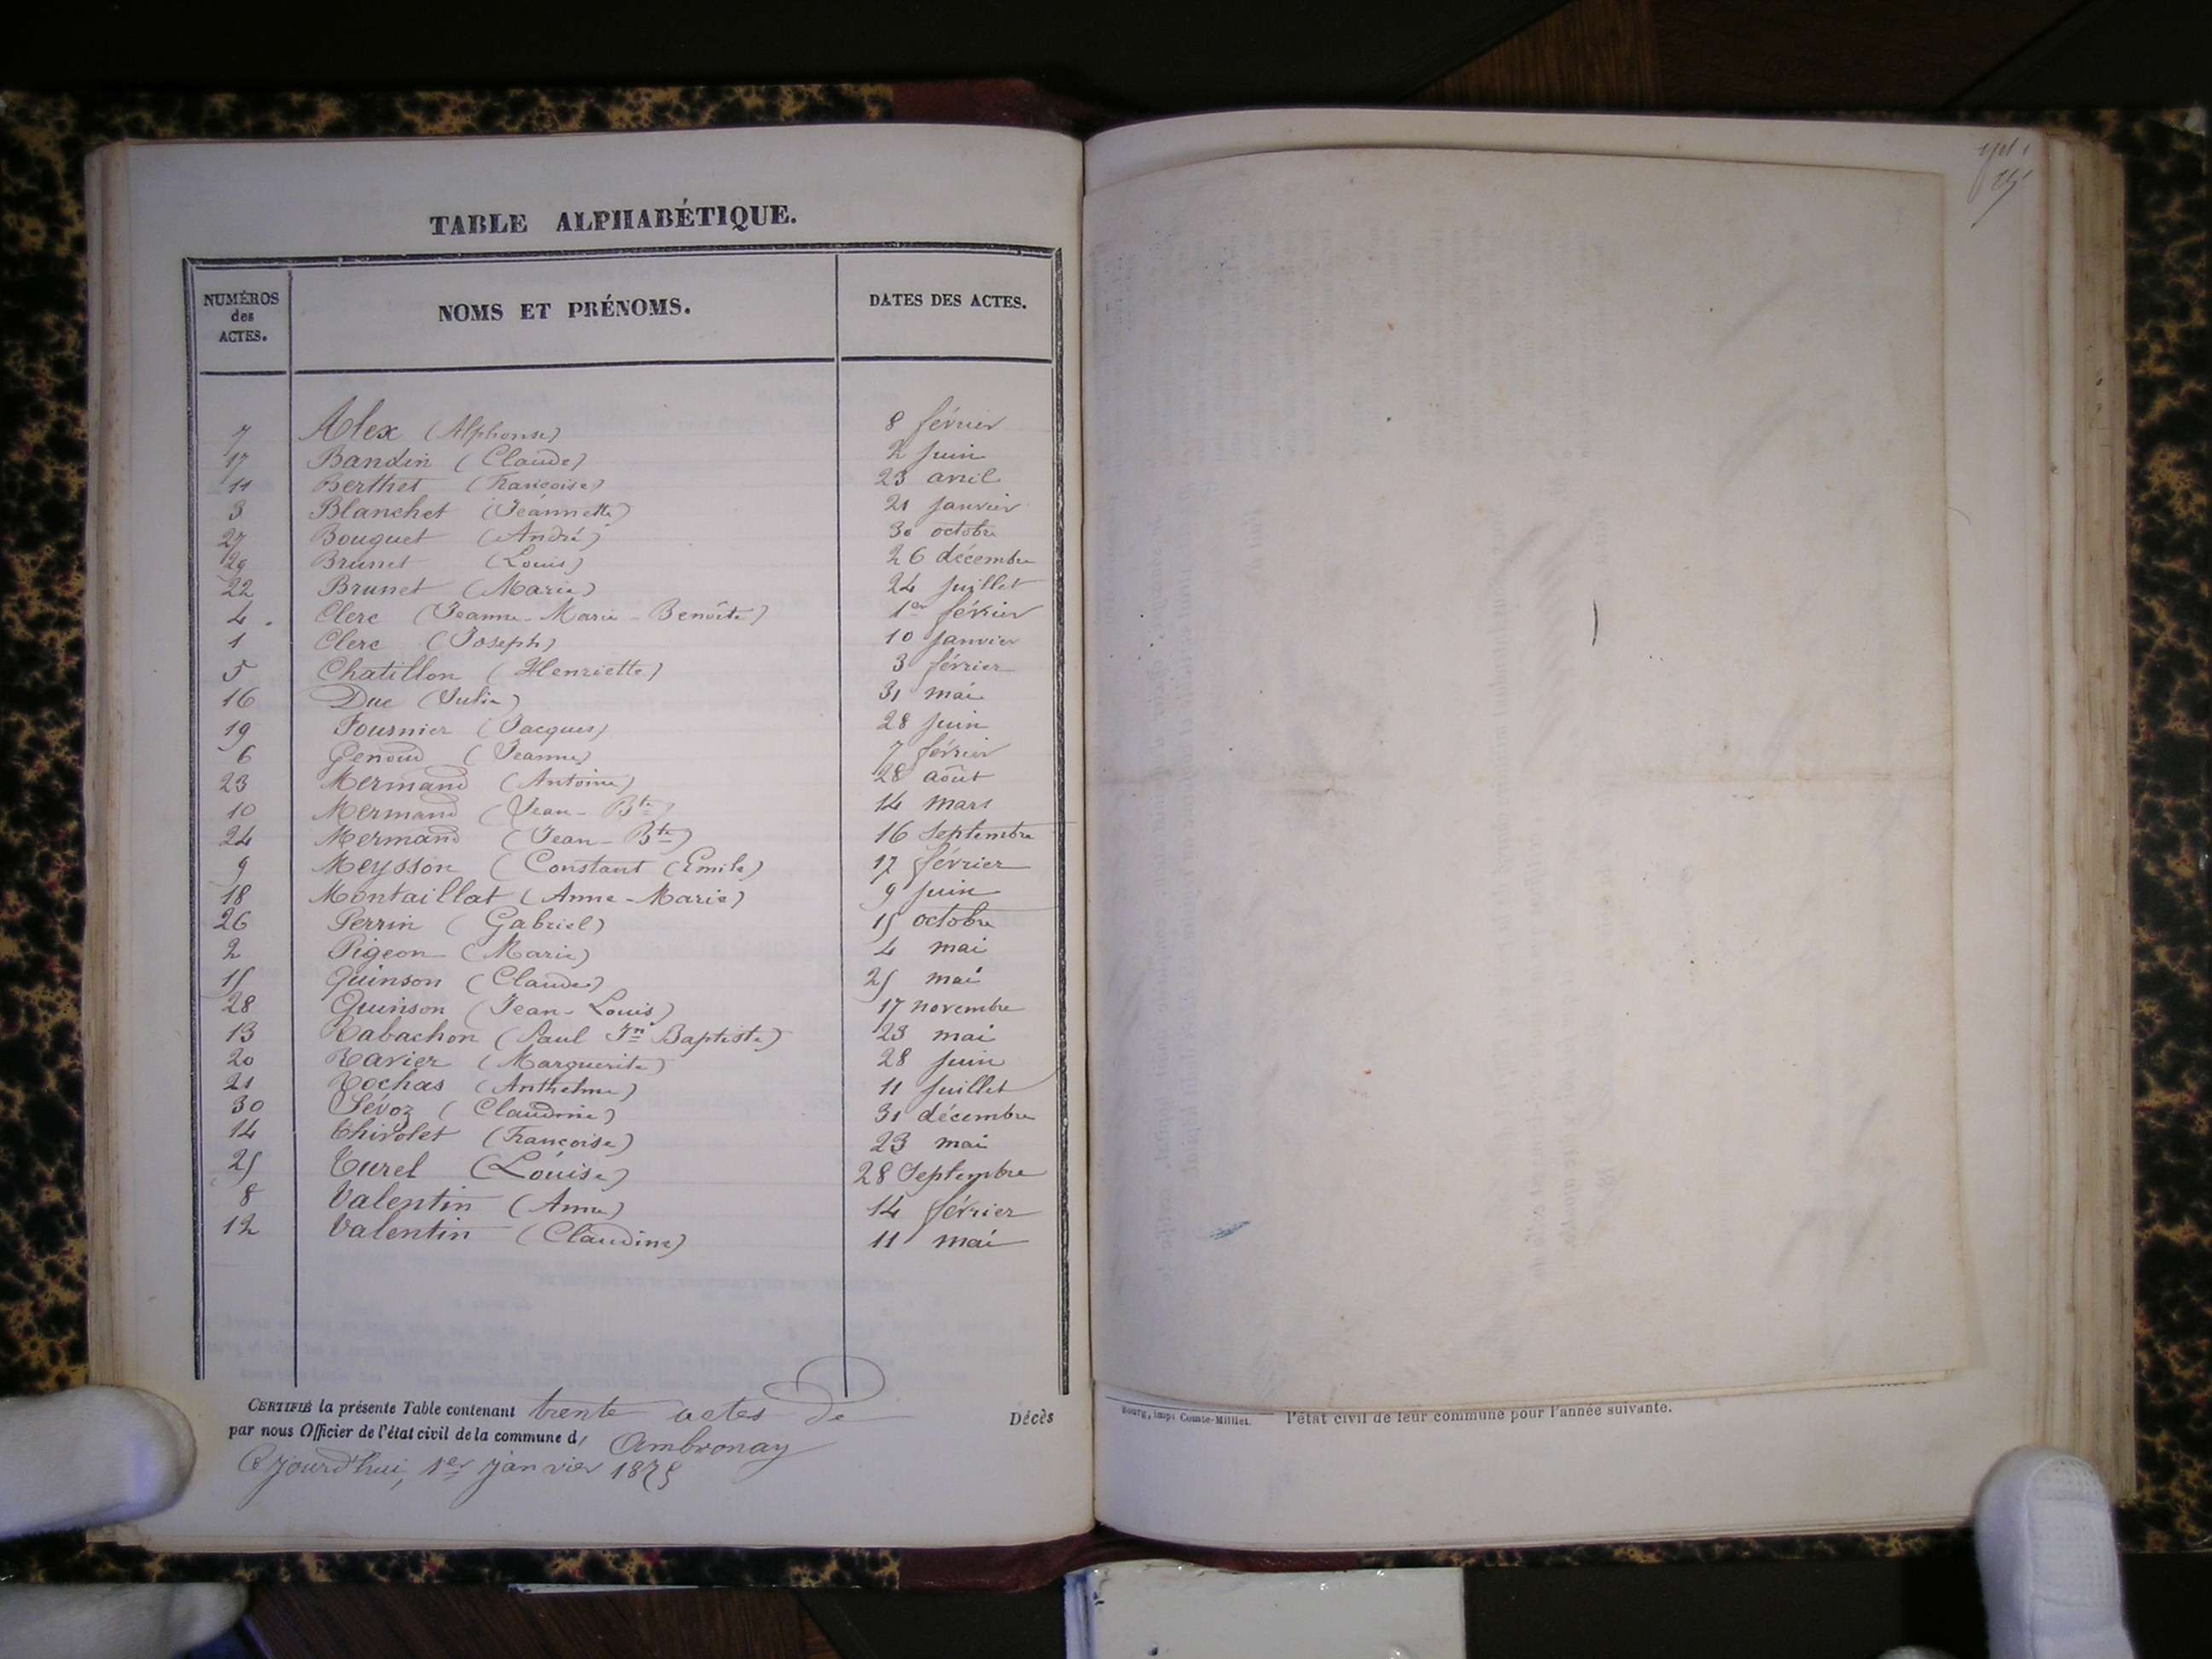 TABLE ALPHABÉTIQUE.
NUMÉROS des ACTES. NOMS ET PRÉNOMS. DATES DES ACTES.
7 Alex (Alphonse) 8 février
17 Bandin (Claude) 2 juin
11 Berthet (Françoise) 23 avril
3 Blanchet (Jeannette) 21 janvier
27 Bouquet (André) 30 octobre
29 Brunet (Louis) 26 décembre
22 Brunet (Marie) 24 juillet
4. Clerc (Jeanne-Marie-Benoîte) 1er février
1 Clerc (Joseph) 10 janvier
5 Chatillon (Henriette) 3 février
16 Duc (Julie) 31 mai
19 Fournier (Jacques) 28 juin
6 Genoud (Jeanne) 7 février
23 Mermand (Antoine) 28 août
10 Mermand (Jean-Bte) 14 mars
24 Mermand (Jean-Bte) 16 Septembre
9 Meysson (Constant (Emile) 17 février
18 Montaillat (Anne-Marie) 9 juin
26 Perrin (Gabriel) 15 octobre
2 Pigeon (Marie) 4 mai
15 Quinson (Claude) 25 mai
28 Quinson (Jean-Louis) 17 novembre
13 Rabachon (Paul Jn Baptiste) 23 mai
20 Ravier (Marguerite) 28 juin
21 Rochas (Anthelme) 11 juillet
30 Sévoz (Claudine) 31 décembre
14 Thivolet (Françoise) 23 mai
25 Turel (Louise) 28 Septembre
8 Valentin (Anne) 14 février
12 Valentin (Claudine) 11 mai
CERTIFIÉ la présente Table contenant trente actes de Décès
par nous Officier de l'état civil de la commune d' Ambronay
Cejourd'hui, 1er janvier 1875
Bourg, imp. Comte-Milliet. l'état civil de leur commune pour l'année suivante.